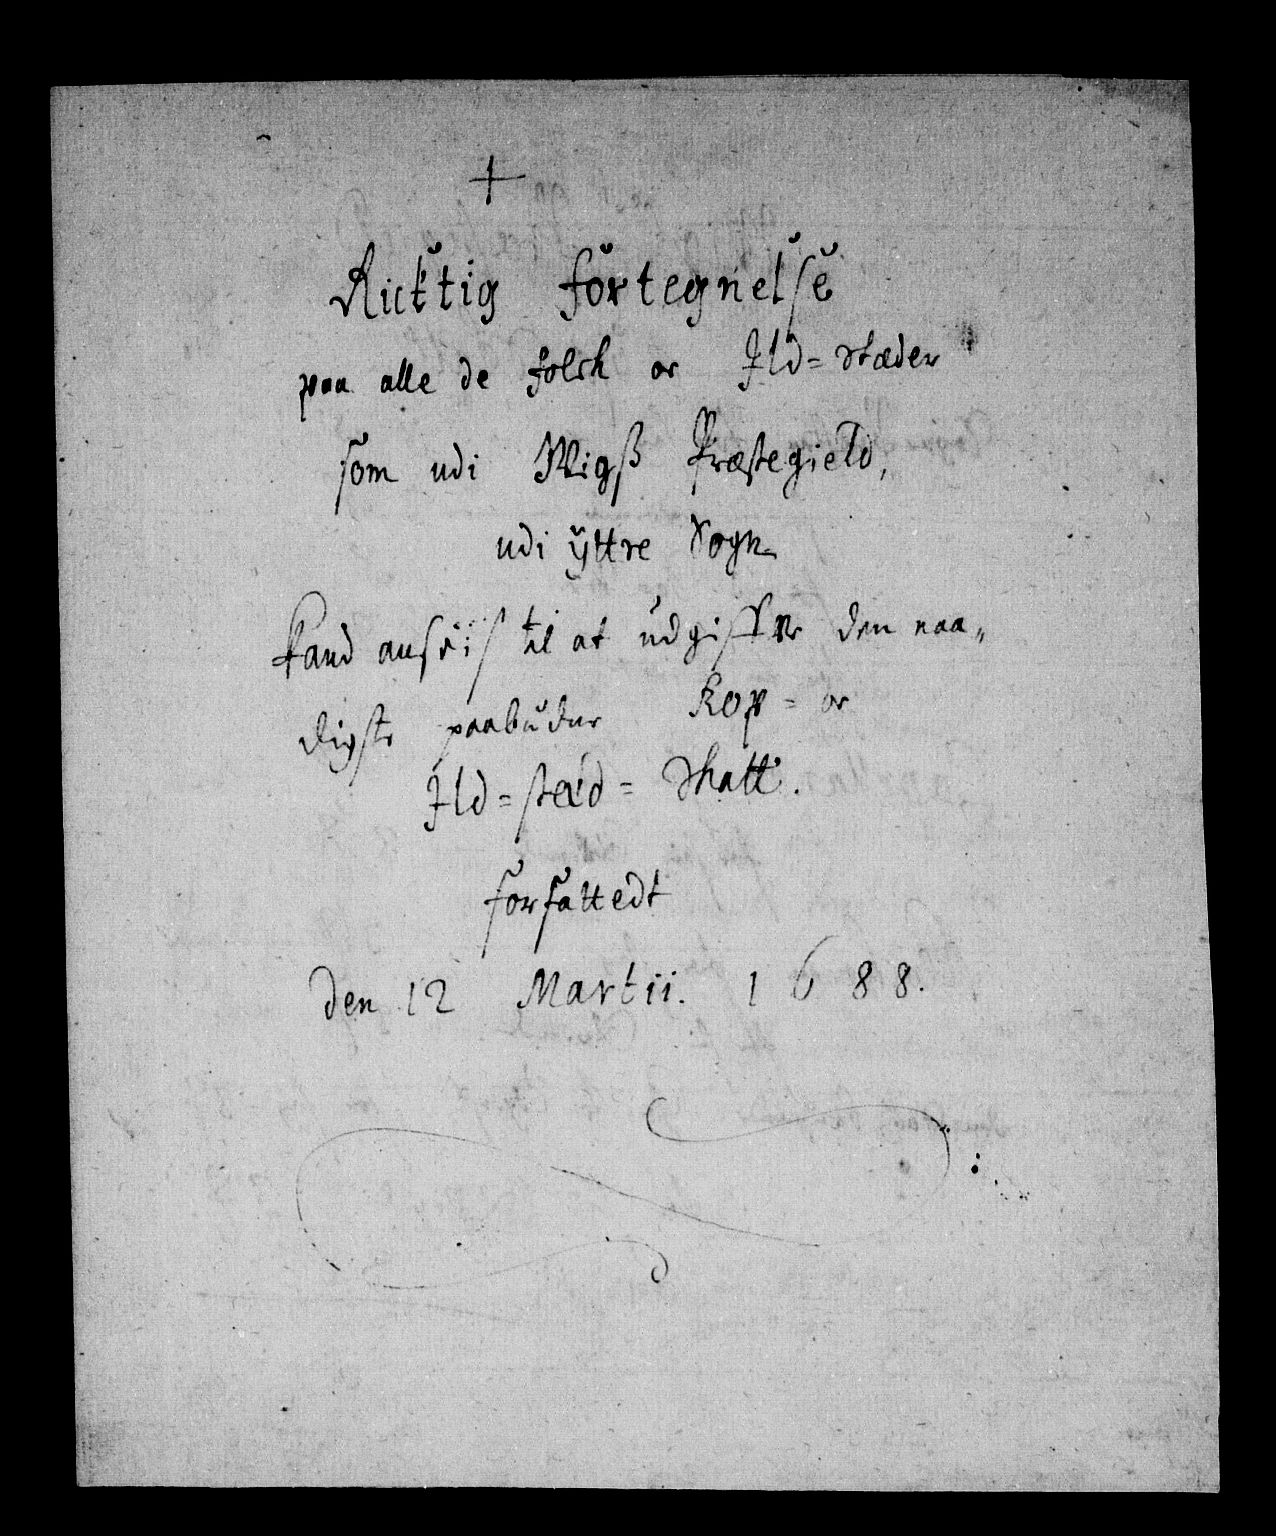 +
Ricktig fortegnelse
paa alle de folck oc Ild=stæder
som udi Wigß Præstegield,
udi ÿttre Sogn
kand ansees til at udgifve den naa„
digste paabudne Kop= oc
Ild=stæd= Skatt.
forfattedt
den 12 Martii. 1688.